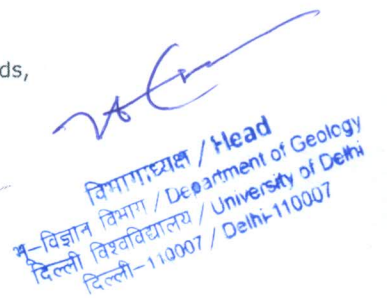 ds,
विभागाध्यक्ष / Head
भू-विज्ञान विभाग / Department of Geology
दिल्ली विश्वविद्यालय / University of Delhi
दिल्ली-110007 / Delhi-110007